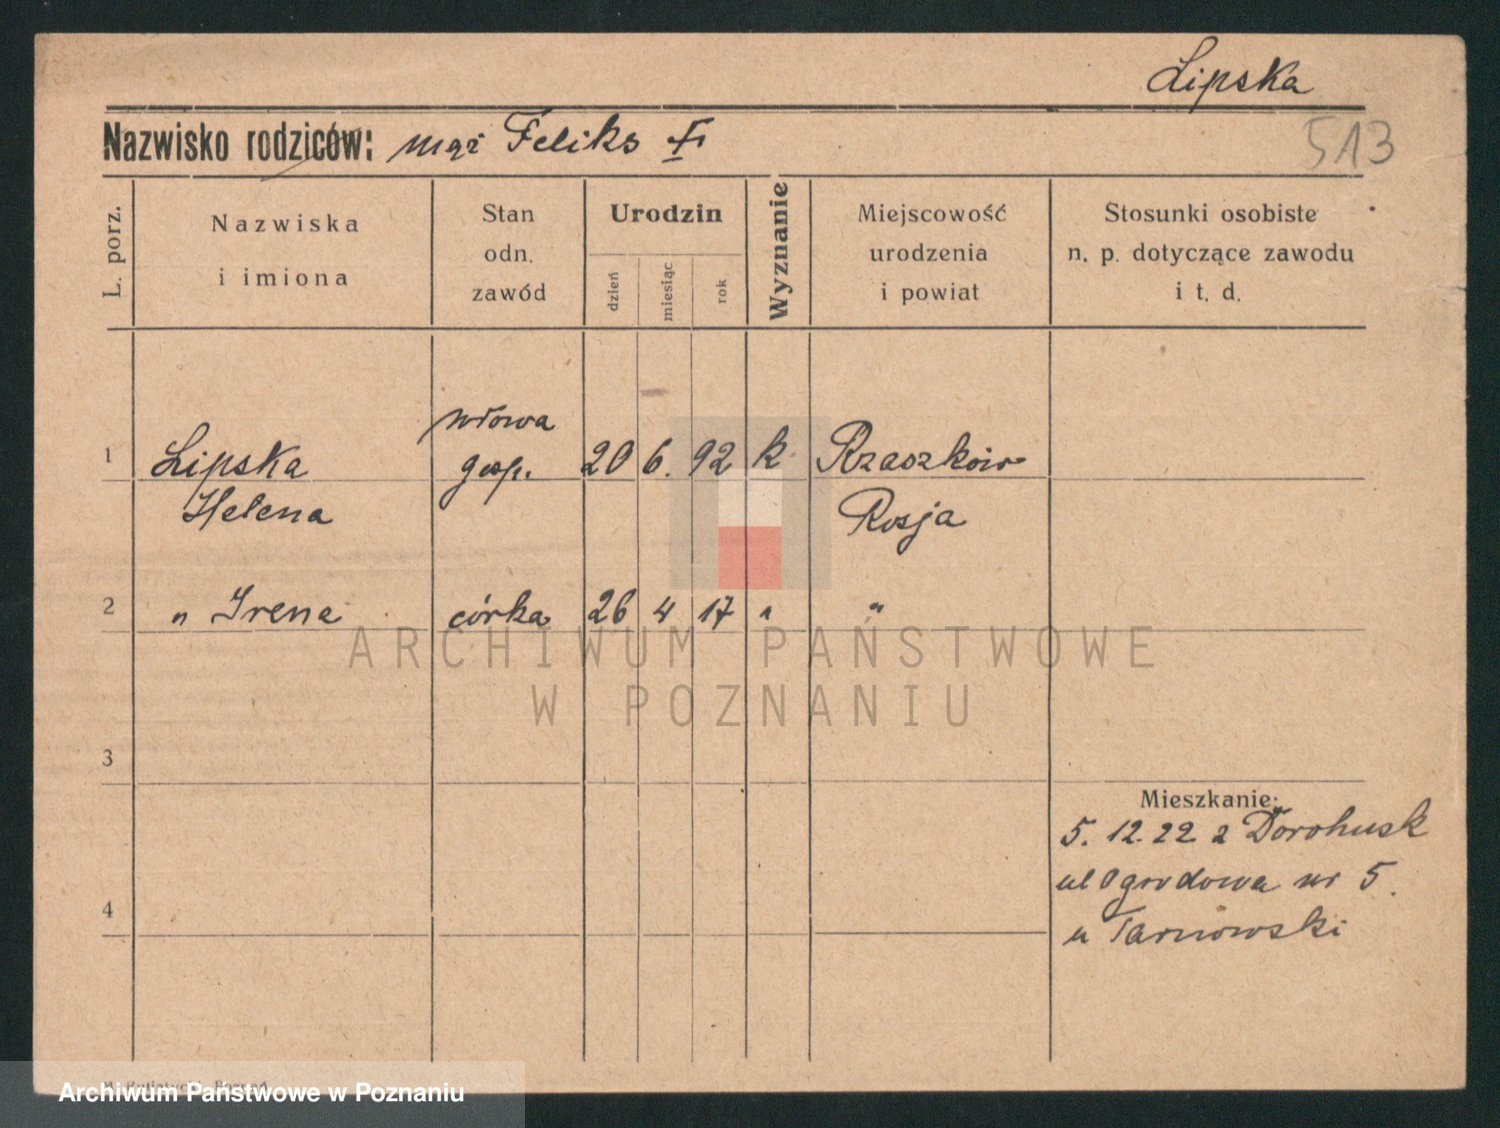 Lipska
Nazwisko rodziców: mąż Feliks
513
L. porz.
Nazwiska
i imiona
Stan
odn.
zawód
Urodzin
dzień
miesiąc
rok
Wyznanie
Miejscowość
urodzenia
i powiat
Stosunki osobiste
n. p. dotyczące zawodu
i t. d.
1 Lipska wdowa gosp. 20 6. 92 k Rzaszków
Helena Rosja
2 " Irena córka 26 4 17 " "
ARCHIWUM PAŃSTWOWE
W POZNANIU
3
Mieszkanie:
5. 12. 22 z Dorohusk
ul Ogrodowa nr 5.
4
u Tarnowski
Archiwum Państwowe w Poznaniu